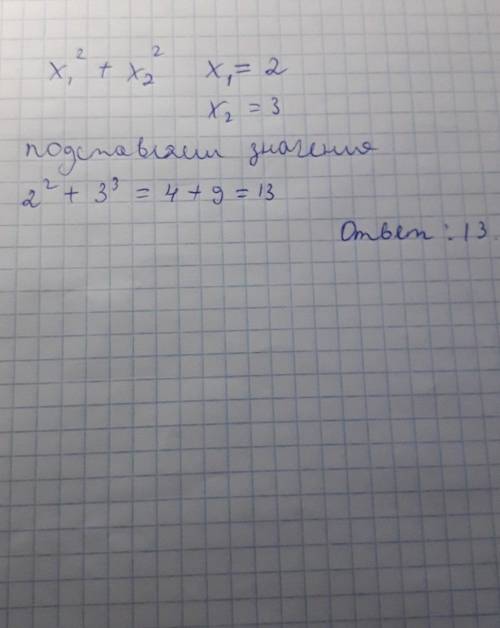 x₁² + x₂² x₁ = 2
x₂ = 3
подставляем значения
2² + 3³ = 4 + 9 = 13
Ответ: 13